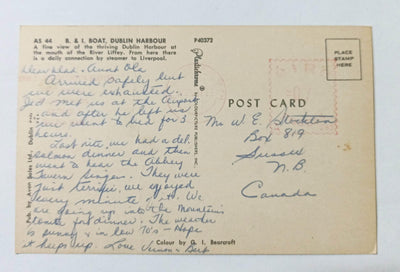 AS 44 B. & I. BOAT, DUBLIN HARBOUR P40372
A fine view of the thriving Dublin Harbour at
the mouth of the River Liffey. From here there
is a daily connection by steamer to Liverpool.
PLACE
STAMP
HERE
Plastichrome ®
POST CARD
Dear Aunt Ola
Arrived safely but
we were exhausted.
met us at the Airport
and after he left us
we went to bed for 3
hours.
Last nite we had a del.
salmon dinner and then
went to hear the Abbey
Tavern Singers. They were
just terrific, we enjoyed
every minute of it. We
are going up into the Mountains
tonite for dinner. The weather
is sunny & in low 70's - Hope
it keeps up. Love Vernon & Bert
Mr W. E. Stockton
Box 819
Sussex
N.B.
Canada
Colour by G. I. Bearcroft